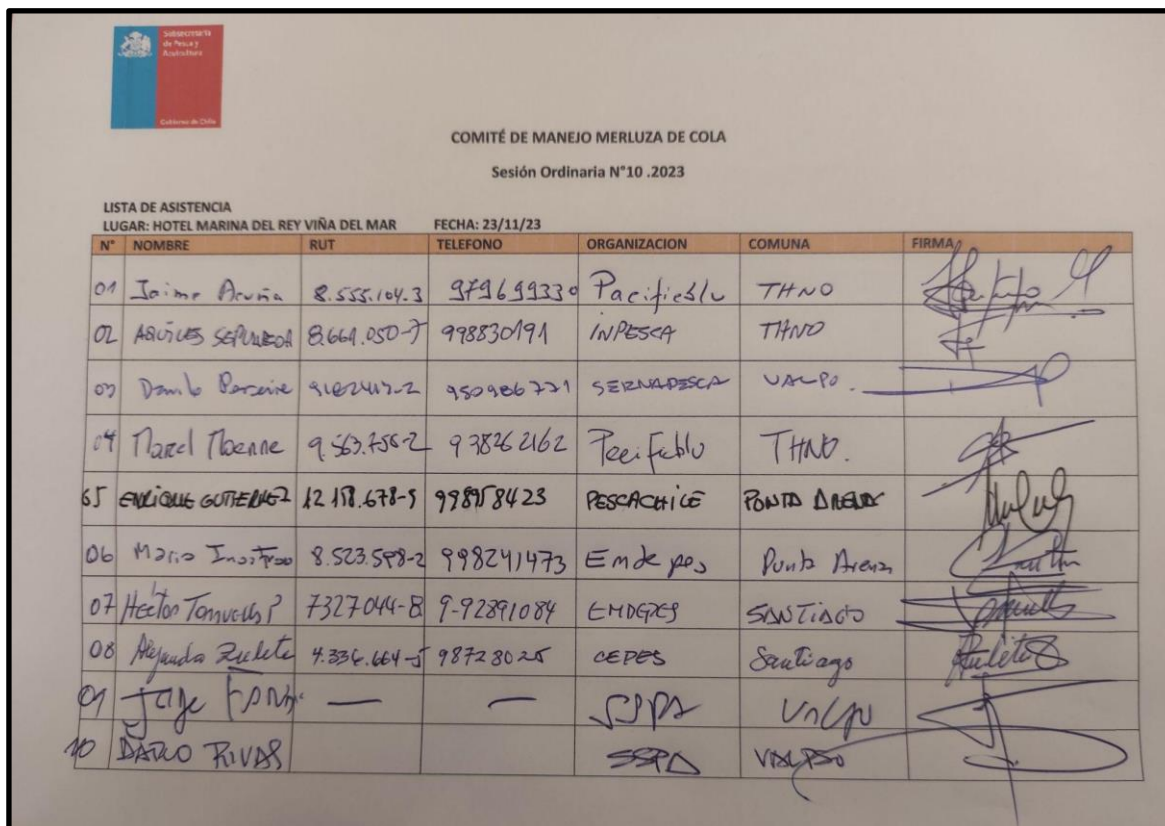 Subsecretaría
de Pesca y
Acuicultura
Gobierno de Chile
COMITÉ DE MANEJO MERLUZA DE COLA
Sesión Ordinaria N°10 .2023
LISTA DE ASISTENCIA
LUGAR: HOTEL MARINA DEL REY VIÑA DEL MAR FECHA: 23/11/23
N° NOMBRE RUT TELEFONO ORGANIZACION COMUNA FIRMA
01 Jaime Acuña 8.555.104.3 979699330 Pacificblu THNO
02 AQUILES SEPULVEDA 8.661.050-7 998830191 INPESCA THNO
03 Danilo 950986771 SERNAPESCA VALPO.
04 9.563.756-2 938262162 Pacificblu THNO.
05 ENRIQUE GUTIERREZ 12.118.678-5 998958423 PESCACHILE PUNTA ARENAS
06 Mario 8.523.598-2 998241473 Emdepes Punta Arenas
07 Hector 7327044-8 9-92891084 EMDEPES SANTIAGO
08 Alejandro Zuleta 98728025 CEPES Santiago
09 Jorge — — SSPA Valpo
10 DARIO RIVAS SSPA VALPSO